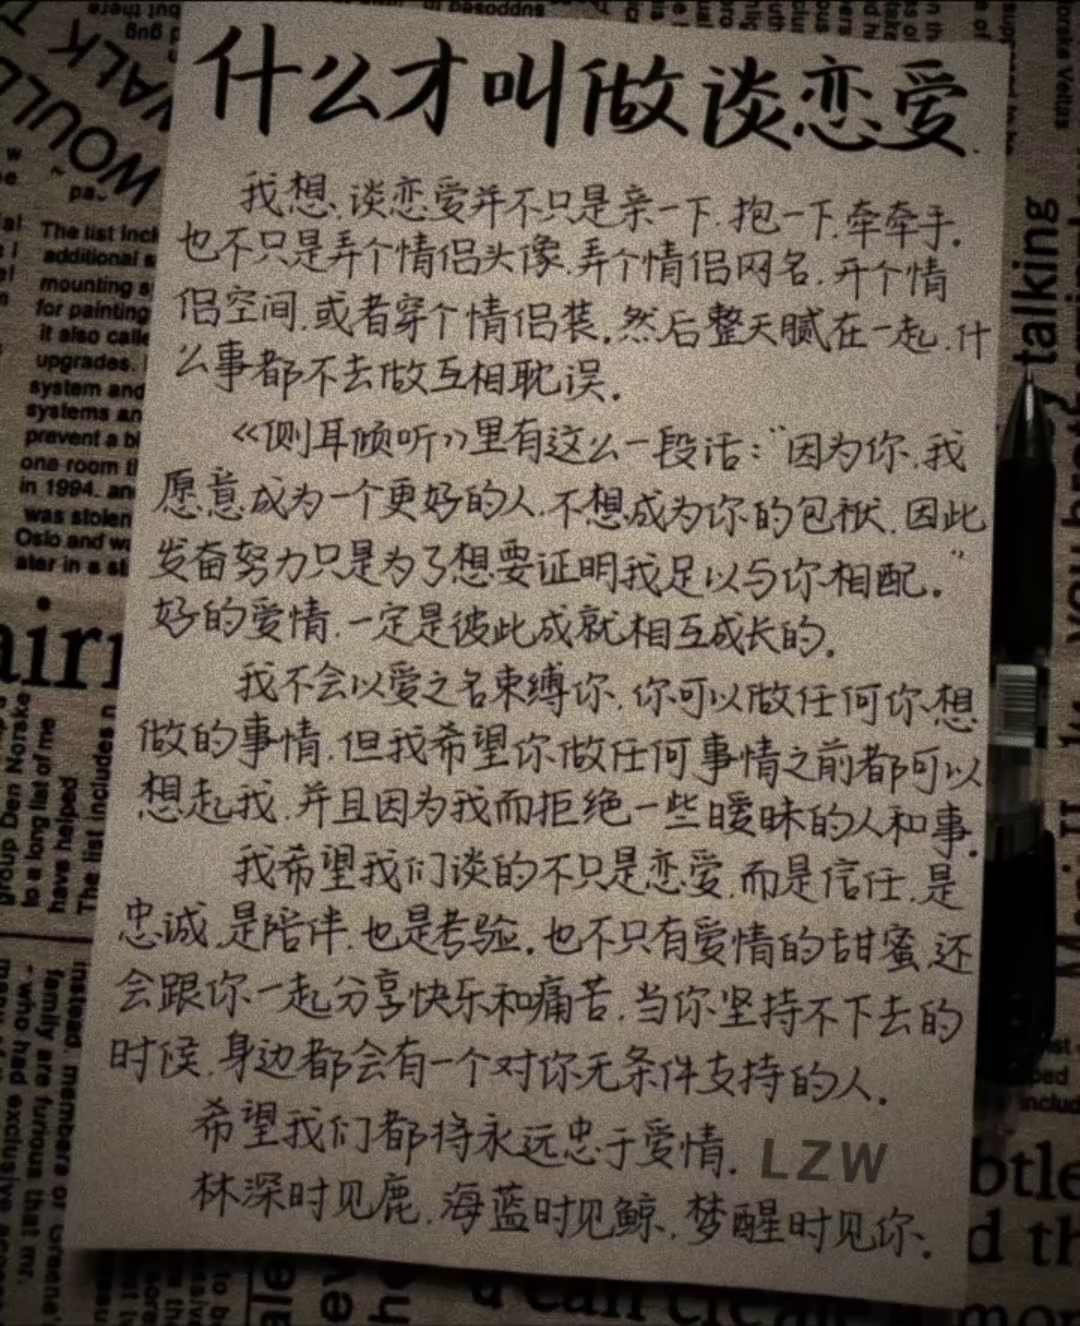 什么才叫做谈恋爱.
我想.谈恋爱并不只是亲一下.抱一下.牵牵手.
也不只是弄个情侣头像.弄个情侣网名.开个情
侣空间.或者穿个情侣装.然后整天腻在一起.什
么事都不去做互相耽误.
《侧耳倾听》里有这么一段话:“因为你.我
愿意成为一个更好的人.不想成为你的包袱.因此
发奋努力只是为了想要证明我足以与你相配.”
好的爱情.一定是彼此成就相互成长的.
我不会以爱之名束缚你.你可以做任何你想
做的事情.但我希望你做任何事情之前都可以
想起我.并且因为我而拒绝一些暧昧的人和事.
我希望我们谈的不只是恋爱.而是信任.是
忠诚.是陪伴.也是考验.也不只有爱情的甜蜜.还
会跟你一起分享快乐和痛苦.当你坚持不下去的
时候.身边都会有一个对你无条件支持的人.
希望我们都将永远忠于爱情.
LZW
林深时见鹿.海蓝时见鲸.梦醒时见你.
WOULD
WALK
The list incl
additional s
mounting s
for painting
it also calle
upgrades.
system and
systems an
prevent a bl
one room t
in 1994. an
was stolen
Oslo and wa
ater in a st
airi
group Den Norske
to a long list of me
have helped
The list includes n
instead, members of
family are furious that mr.
who had exclusive
talking
btle
d th
u can create mor